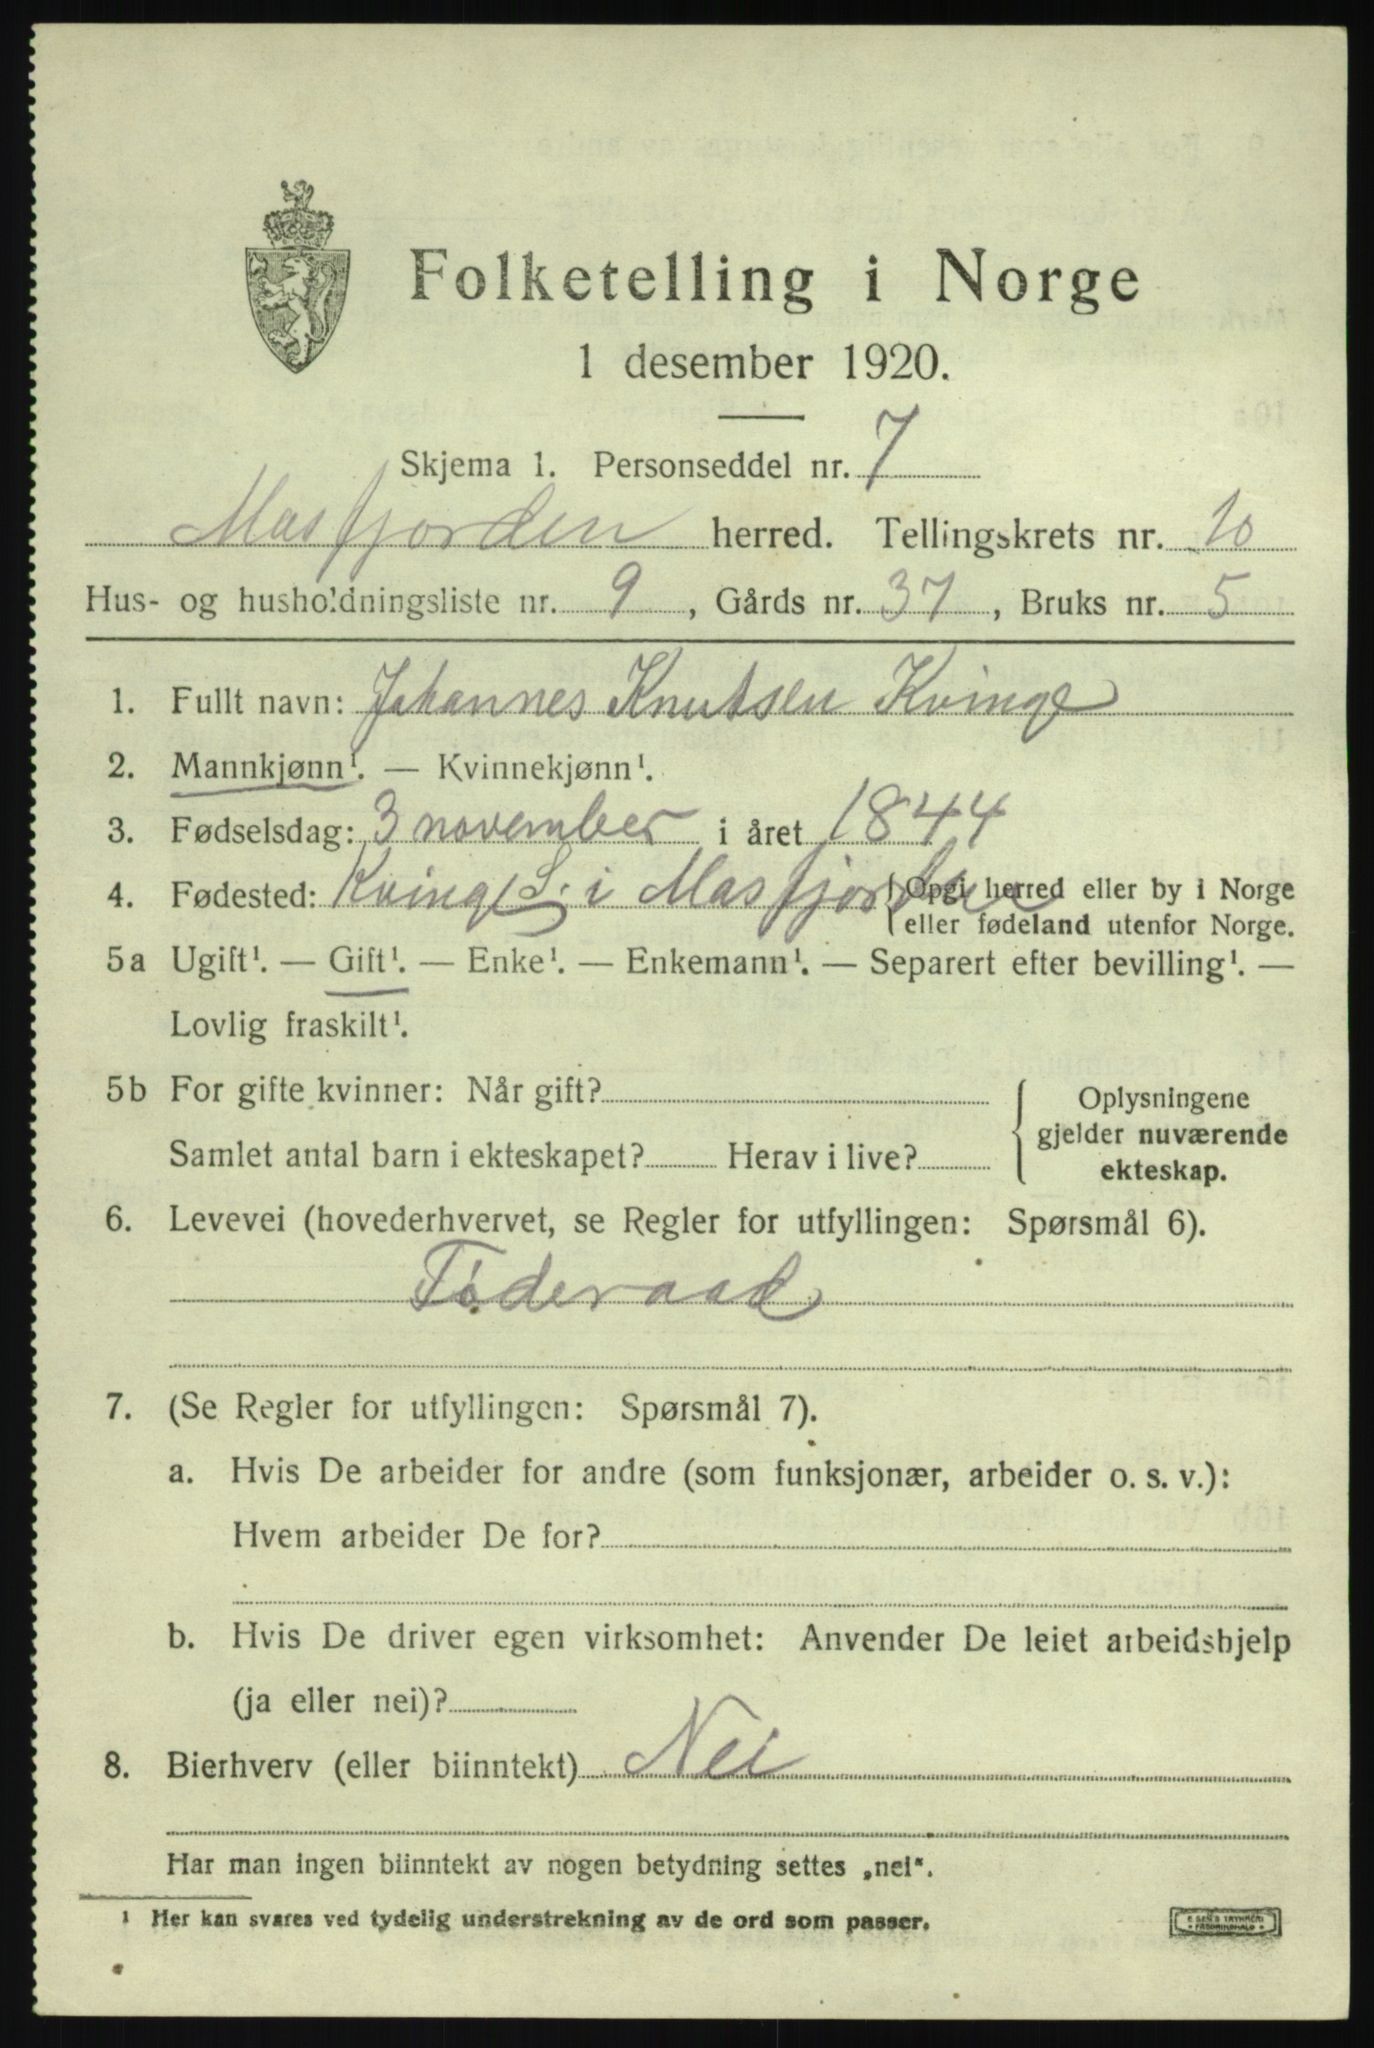 Folketelling i Norge
1 desember 1920.
Skjema 1. Personseddel nr. 7
Masfjorden herred. Tellingskrets nr. 10
Hus- og husholdningsliste nr. 9, Gårds nr. 37, Bruks nr. 5
1. Fullt navn: Johannes Knutsen Kvinge
2. Mannkjønn¹. — Kvinnekjønn¹.
3. Fødselsdag: 3 november i året 1844
4. Fødested: Kvinge i Masfjorden { Opgi herred eller by i Norge
eller fødeland utenfor Norge.
5a Ugift¹. — Gift¹. — Enke¹. — Enkemann¹. — Separert efter bevilling¹. —
Lovlig fraskilt¹.
5b For gifte kvinner: Når gift?
Samlet antal barn i ekteskapet? Herav i live?
Oplysningene
gjelder nuværende
ekteskap.
6. Levevei (hovederhvervet, se Regler for utfyllingen: Spørsmål 6).
Føderaad
7. (Se Regler for utfyllingen: Spørsmål 7).
a. Hvis De arbeider for andre (som funksjonær, arbeider o. s. v.):
Hvem arbeider De for?
b. Hvis De driver egen virksomhet: Anvender De leiet arbeidshjelp
(ja eller nei)?
8. Bierhverv (eller biinntekt) Nei
Har man ingen biinntekt av nogen betydning settes „nei“.
¹ Her kan svares ved tydelig understrekning av de ord som passer.